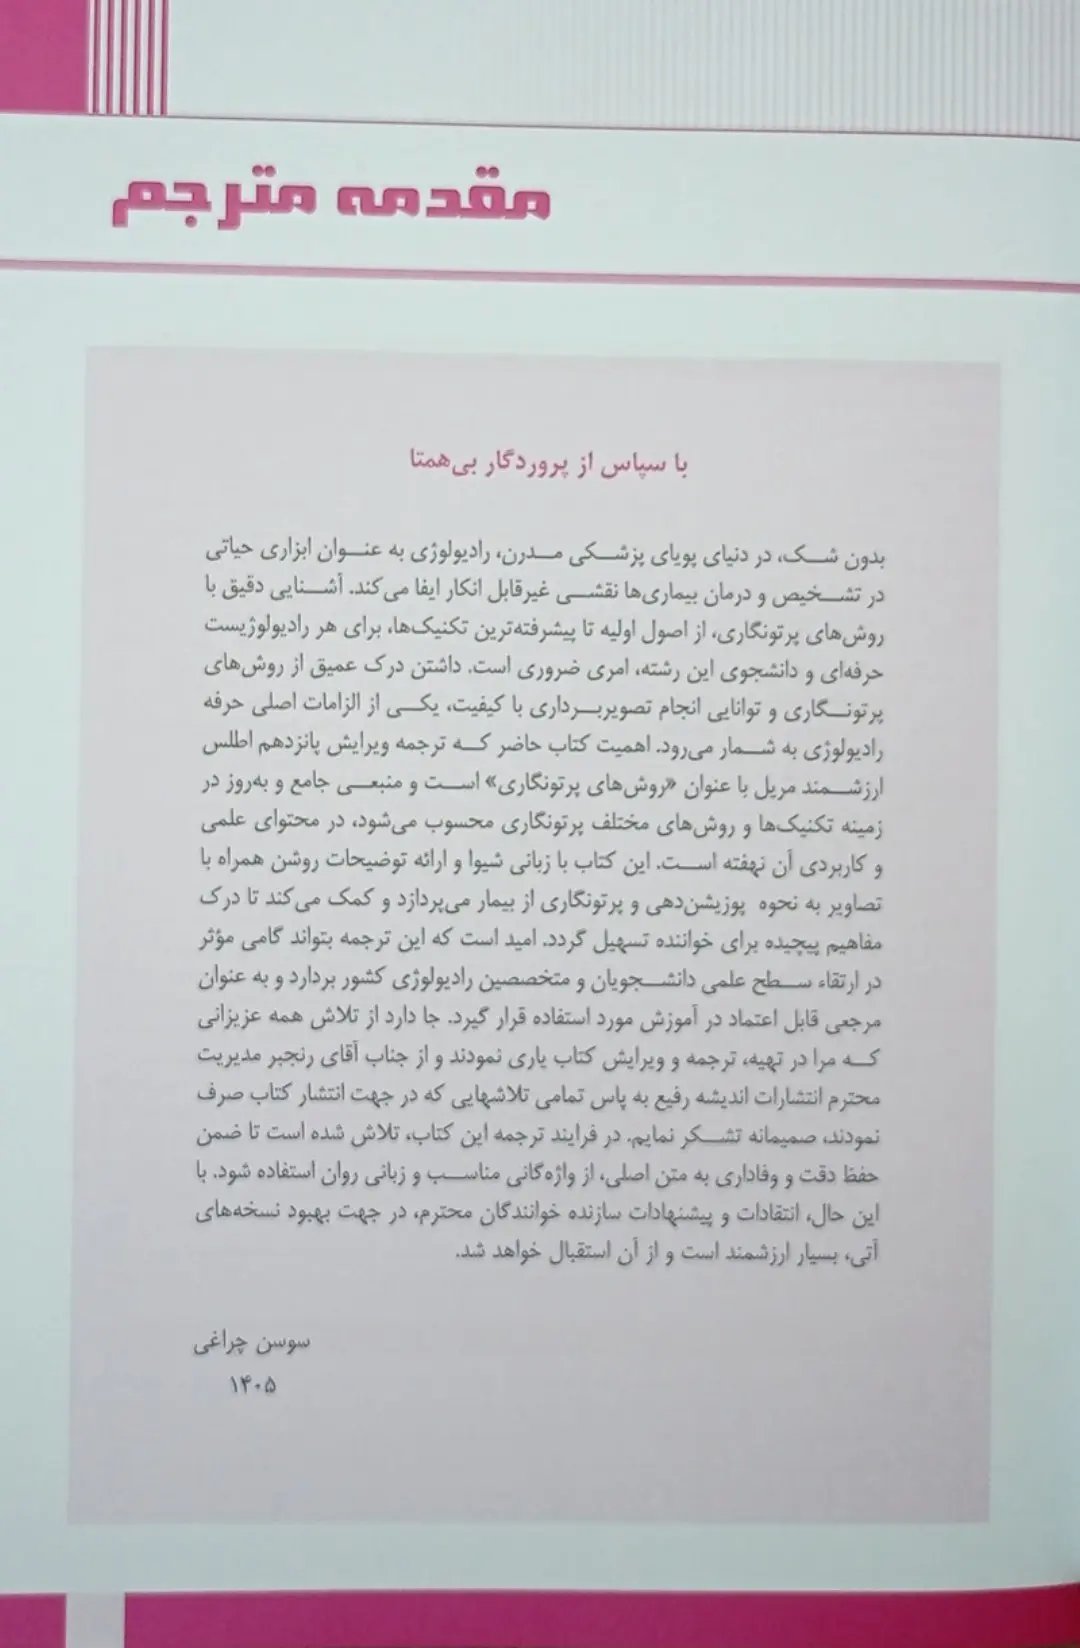 مقدمه مترجم
با سپاس از پروردگار بی‌همتا
بدون شک، در دنیای پویای پزشکی مدرن، رادیولوژی به عنوان ابزاری حیاتی
در تشخیص و درمان بیماری‌ها نقشی غیرقابل انکار ایفا می‌کند. آشنایی دقیق با
روش‌های پرتونگاری، از اصول اولیه تا پیشرفته‌ترین تکنیک‌ها، برای هر رادیولوژیست
حرفه‌ای و دانشجوی این رشته، امری ضروری است. داشتن درک عمیق از روش‌های
پرتونگاری و توانایی انجام تصویربرداری با کیفیت، یکی از الزامات اصلی حرفه
رادیولوژی به شمار می‌رود. اهمیت کتاب حاضر که ترجمه ویرایش پانزدهم اطلس
ارزشمند مریل با عنوان «روش‌های پرتونگاری» است و منبعی جامع و به‌روز در
زمینه تکنیک‌ها و روش‌های مختلف پرتونگاری محسوب می‌شود، در محتوای علمی
و کاربردی آن نهفته است. این کتاب با زبانی شیوا و ارائه توضیحات روشن همراه با
تصاویر به نحوه پوزیشن‌دهی و پرتونگاری از بیمار می‌پردازد و کمک می‌کند تا درک
مفاهیم پیچیده برای خواننده تسهیل گردد. امید است که این ترجمه بتواند گامی مؤثر
در ارتقاء سطح علمی دانشجویان و متخصصین رادیولوژی کشور بردارد و به عنوان
مرجعی قابل اعتماد در آموزش مورد استفاده قرار گیرد. جا دارد از تلاش همه عزیزانی
که مرا در تهیه، ترجمه و ویرایش کتاب یاری نمودند و از جناب آقای رنجبر مدیریت
محترم انتشارات اندیشه رفیع به پاس تمامی تلاشهایی که در جهت انتشار کتاب صرف
نمودند، صمیمانه تشکر نمایم. در فرایند ترجمه این کتاب، تلاش شده است تا ضمن
حفظ دقت و وفاداری به متن اصلی، از واژه‌گانی مناسب و زبانی روان استفاده شود. با
این حال، انتقادات و پیشنهادات سازنده خوانندگان محترم، در جهت بهبود نسخه‌های
آتی، بسیار ارزشمند است و از آن استقبال خواهد شد.
سوسن چراغی
۱۴۰۵